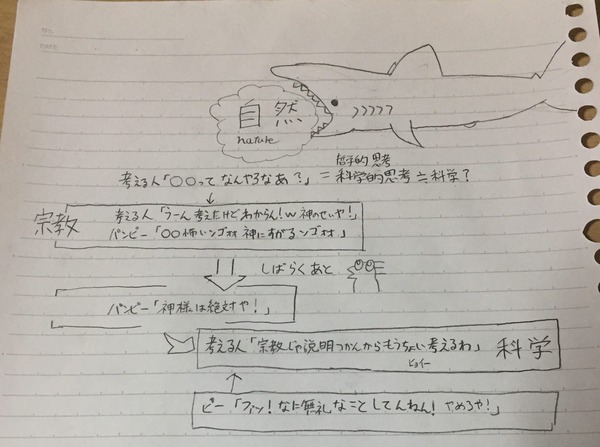 自然
nature
哲学的思考
考える人「○○ってなんやろなあ?」=科学的思考≒科学?
宗教
考える人「うーん考えたけどわからん!w 神のせいや!」
パンピー「○○怖いンゴォォ 神にすがるンゴォォ」
しばらくあと
パンピー「神様は絶対や!」
考える人「宗教じゃ説明つかんからもうちょい考えるわ」 科学
ヒョイー
ピー「ファッ!なに無礼なことしてんねん!やめろや!」